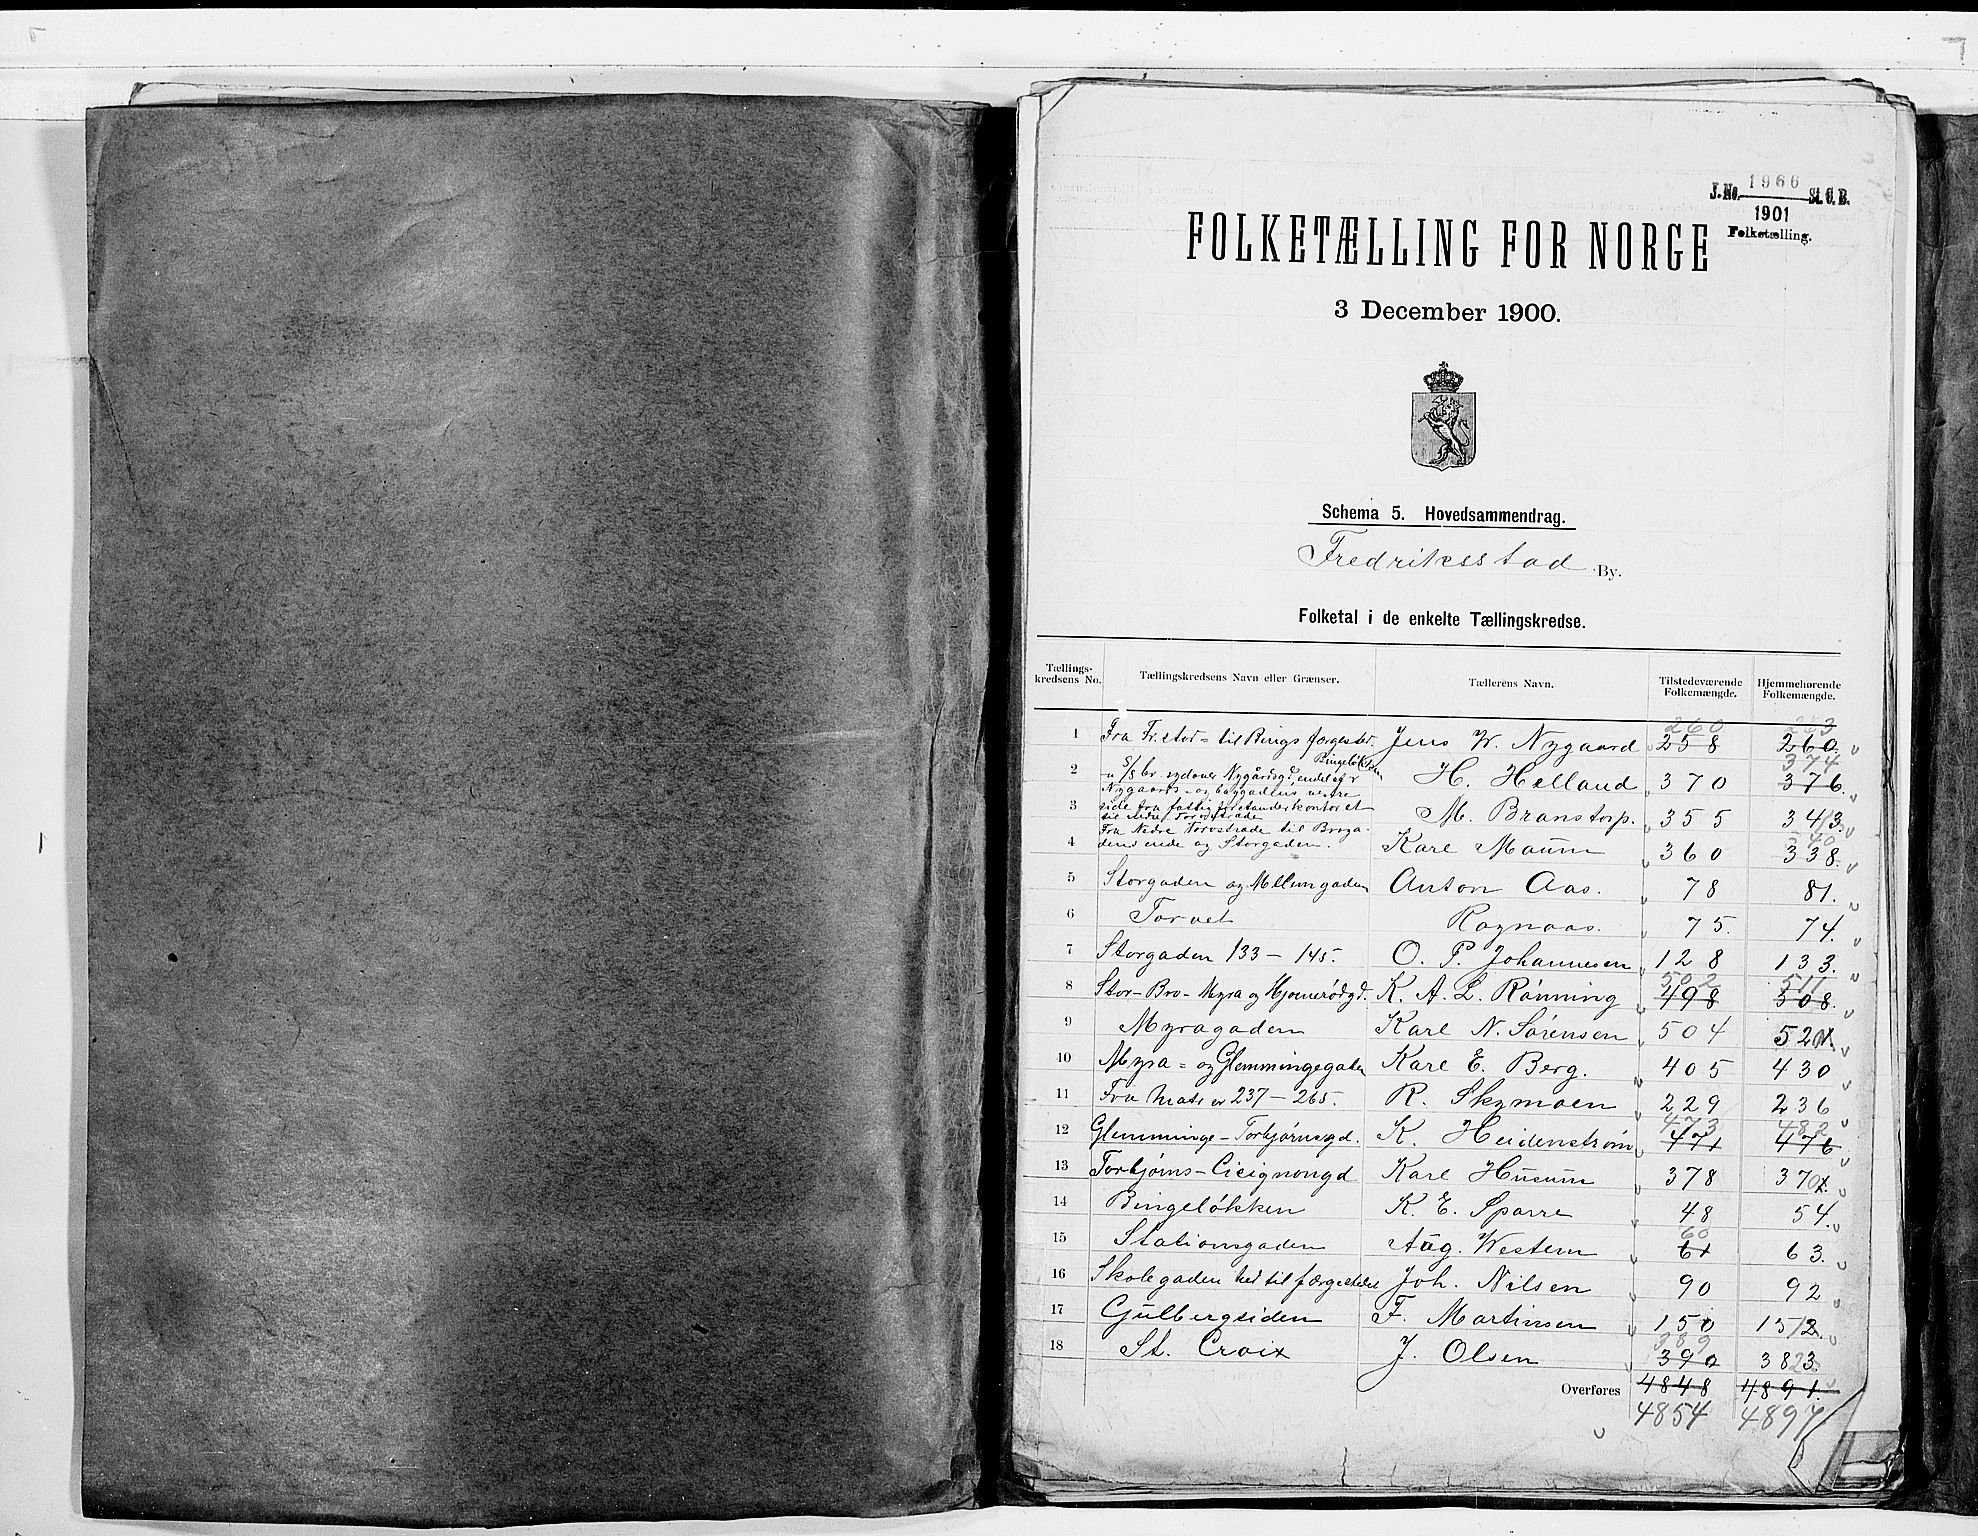 J.No. 1966 St.C.B.
1901
Folketælling.
FOLKETÆLLING FOR NORGE
3 December 1900.
Schema 5. Hovedsammendrag.
Fredriksstad By.
Folketal i de enkelte Tællingskredse.
Tællings-kredsens No. Tællingskredsens Navn eller Grænser. Tællerens Navn. Tilstedeværende Folkemængde. Hjemmehørende Folkemængde.
260 263
1 Fra Fr.stor= til Bings færgested. Jens W. Nygaard 258 260.
Bingeløkken 374
2 H. Holland 370 376.
Nygaards- og
3 side fra fattigforstanderkontoret M. Branstorp. 355 343.
til nedre Torvstræde
Fra Nedre Torvstræde til Broga- 340
4 dens ende og Storgaden. Karl Maum 360 338.
5 Storgaden og Mellemgaden Anton Aas. 78 81.
6 Torvet Ragnaas. 75. 74.
7 Storgaden 133-145. O. P. Johannesen 128 133.
502 511
8 Stor-Bro-Myra og Hjomerødgd. K. A. L. Rönning 498 508.
9 Myragaden Karl N. Sörensen 504 520
10 Myra= og Glemmingegaden Karl E. Berg. 405 430
11 Fra Matr er 237-265. R. Skymoen 229 236
473 482
12 Glemminge-Torbjørnsgd. K. Heidenström 471 476
13 Torbjørns-Cicignongd Karl Husum 378 370
14 Bingeløkken K. E. Sparre 48 54.
60
15 Stationsgaden Aug. Western 61 63.
16 Skolegaden ned til færgestedet Joh. Nilsen 90 92
17 Gulbergsiden F. Martinsen 150 152.
389
18 St. Croix J. Olsen 390 383.
Overføres 4848 4891.
4854 4897